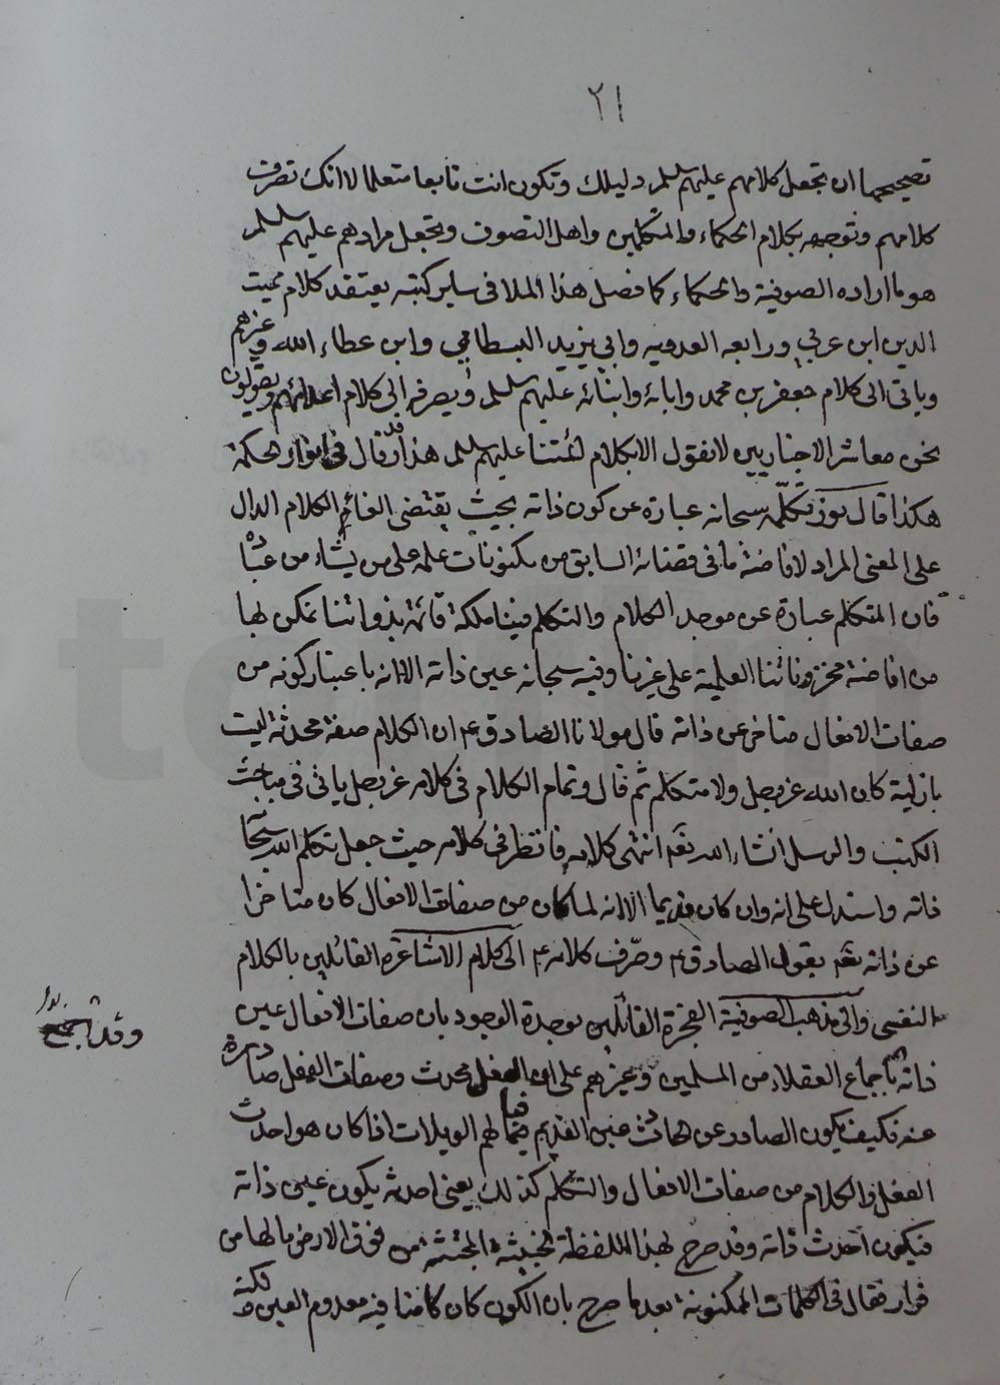 ٢١
تصحيحها ان تجعل كلامهم عليهم السلم دليلك وتكون انت تابعا متعلما لا انك تصرف
كلامهم وتوجهه بكلام الحكماء والمتكلمين واهل التصوف وتجعل مرادهم عليهم السلم
هو ما اراده الصوفية والحكماء كما فصل هذا الملا فى ساير كتبه يعتقد كلام مميت
الدين ابن عربي ورابعه العدويه وابي يزيد البسطامي وابن عطاء الله وغيرهم
وياتى الى كلام جعفر بن محمد وابائه وابنائه عليهم السلم ويصرفه الى كلام اعدائهم ويقولون
نحن معاشر الاخباريين لا نقول الا بكلام ائمتنا عليهم السلم هذا وقد قال فى انوار الحكمة
هكذا قال نور تكلمه سبحانه عبارة عن كون ذاته بحيث يقتضى القاء الكلام الدال
على المعنى المراد لافاضة ما فى قضائه السابق من مكنونات علمه على من يشاء من عباده
فان المتكلم عبارة عن موجد الكلام والتكلم فينا ملكة قائمة بذواتنا نتمكن بها
من افاضة مخزوناتنا العلمية على غيرنا وفيه سبحانه عين ذاته الا انه باعتبار كونه من
صفات الافعال متاخر عن ذاته قال مولانا الصادق ع ان الكلام صفة محدثة ليست
بازلية كان الله عز وجل ولا متكلم ثم قال وتمام الكلام فى كلامه عز وجل ياتى فى مباحث
الكتب والرسل انشاء الله تعم انتهى كلامه فانظر فى كلامه حيث جعل تكلم الله سبحانه
ذاته واستدل على انه وان كان قديما الا انه لما كان من صفات الافعال كان متاخرا
عن ذاته تعم بقول الصادق ع وصرف كلامه ع الى كلام الاشاعرة القائلين بالكلام
النفسى والى مذهب الصوفية الفجرة القائلين بوحدة الوجود بان صفات الافعال عين
ذاته باجماع العقلاء من المسلمين وغيرهم على ان الفعل محدث وصفات الفعل صادرة
عنه فكيف يكون الصادر عن حادث عين القديم فيا لهم الويلات اذا كان هو احدث
الفعل والكلام من صفات الافعال والتكلم كذلك يعنى احدثه يكون عين ذاته
فيكون احدث ذاته وقد صرح بهذا اللفظة الخبيثة المجتثة من فوق الارض ما لها من
قرار فقال فى الكلمات المكنونة بعد ما صرح بان الكون كان كامنا فيه معدوم العين ولكنه